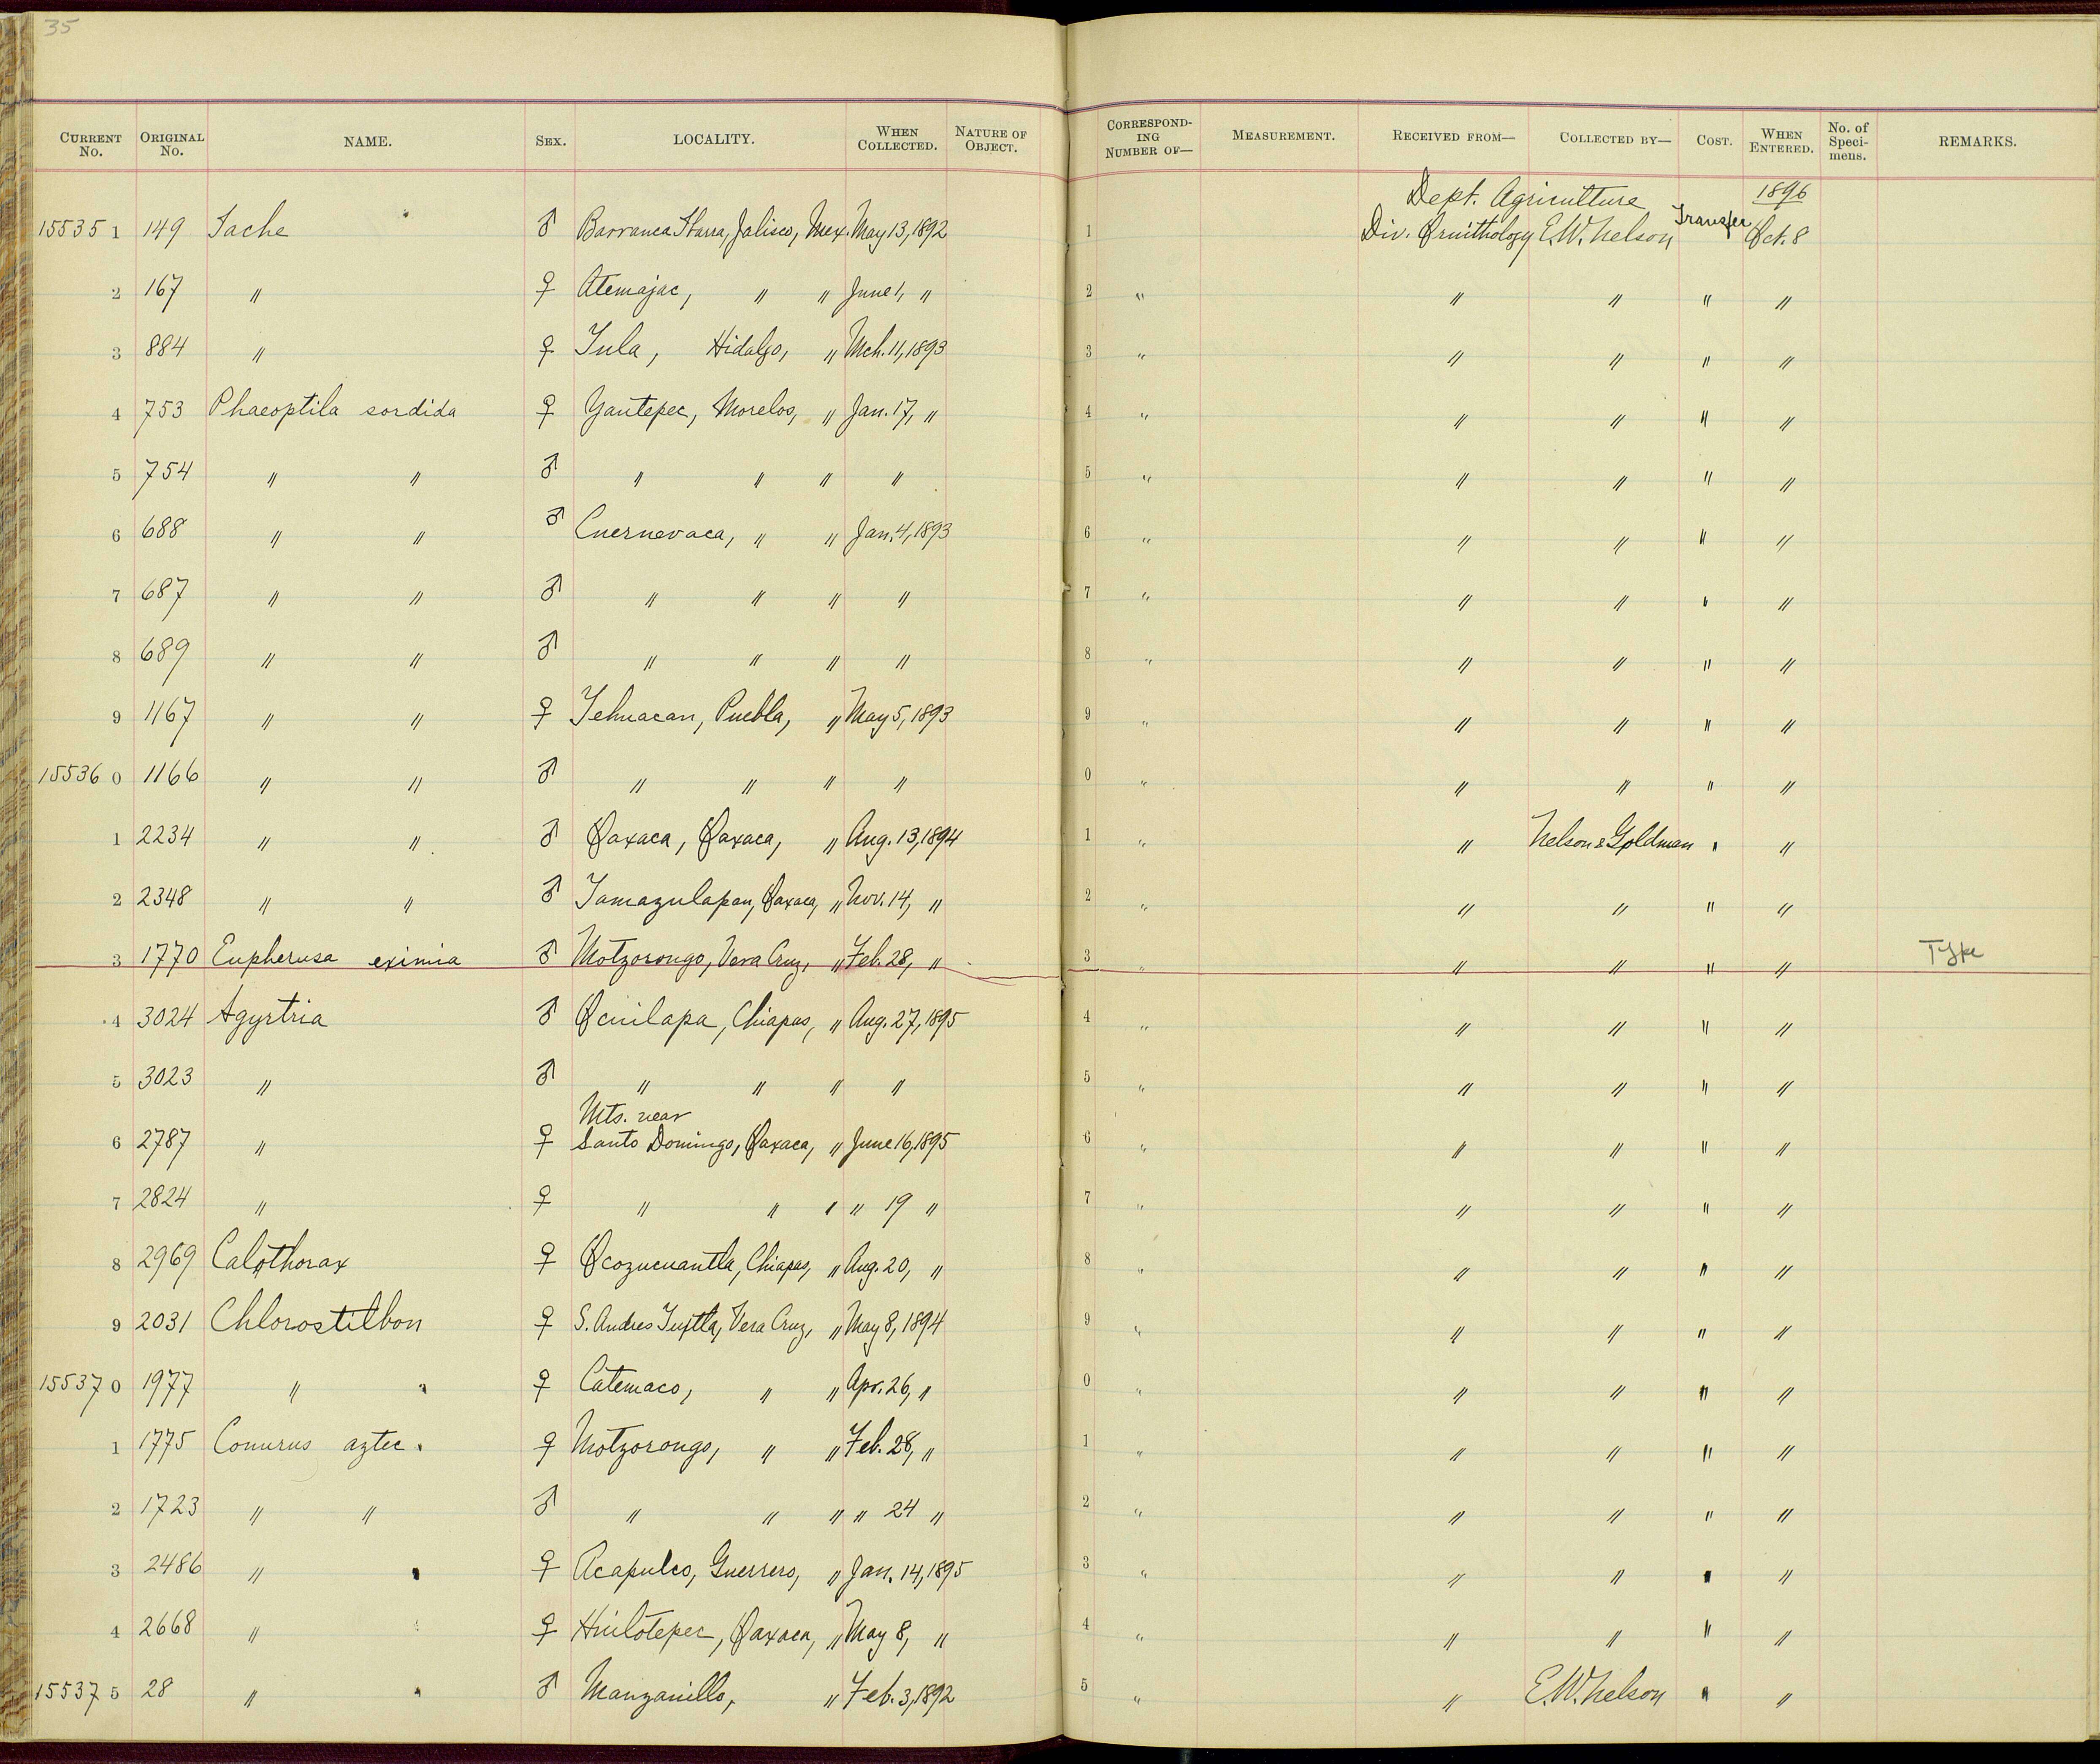 35
CURRENT No. ORIGINAL No. NAME. SEX. LOCALITY. WHEN COLLECTED. NATURE OF OBJECT. CORRESPONDING NUMBER OF— MEASUREMENT. RECEIVED FROM— COLLECTED BY— COST. WHEN ENTERED. No. of Specimens. REMARKS.
Dept. Agriculture 1896
15535 1 149 Iache ♂ Barranca Ibarra, Jalisco, Mex. May 13, 1892 1 Div. Ornithology E.W. Nelson Transfer Oct. 8
2 167 " ♀ Atemajac, " " June 1, " 2 " " " " "
3 884 " ♀ Tula, Hidalgo, " Mch. 11, 1893 3 " " " " "
4 753 Phaeoptila sordida ♀ Yautepec, Morelos, " Jan. 17, " 4 " " " " "
5 754 " " ♂ " " " " 5 " " " " "
6 688 " " ♂ Cuernevaca, " " Jan. 4, 1893 6 " " " " "
7 687 " " ♂ " " " " 7 " " " " "
8 689 " " ♂ " " " " 8 " " " " "
9 1167 " " ♀ Tehuacan, Puebla, " May 5, 1893 9 " " " " "
15536 0 1166 " " ♂ " " " " 0 " " " " "
1 2234 " " ♂ Oaxaca, Oaxaca, " Aug. 13, 1894 1 " " Nelson & Goldman " "
2 2348 " " ♂ Tamazulapan, Oaxaca, " Nov. 14, " 2 " " " " "
3 1770 Eupherusa eximia ♂ Motzorongo, Vera Cruz, " Feb. 28, " 3 " " " " " Type
4 3024 Agyrtria ♂ Ocuilapa, Chiapas, " Aug. 27, 1895 4 " " " " "
5 3023 " ♂ " " " " 5 " " " " "
Mts. near
6 2787 " ♀ Santo Domingo, Oaxaca, " June 16, 1895 6 " " " " "
7 2824 " ♀ " " " " 19 " 7 " " " " "
8 2969 Calothorax ♀ Ocozucuantla, Chiapas, " Aug. 20, " 8 " " " " "
9 2031 Chlorostilbon ♀ S. Andres Tuxtla, Vera Cruz, " May 8, 1894 9 " " " " "
15537 0 1977 " " ♀ Catemaco, " " Apr. 26, " 0 " " " " "
1 1775 Conurus aztec. ♀ Motzorongo, " " Feb. 28, " 1 " " " " "
2 1723 " " ♂ " " " " 24 " 2 " " " " "
3 2486 " " ♀ Acapulco, Guerrero, " Jan. 14, 1895 3 " " " " "
4 2668 " " ♀ Huilotepec, Oaxaca, " May 8, " 4 " " " " "
15537 5 28 " " ♂ Manzanillo, " Feb. 3, 1892 5 " " E.W. Nelson " "